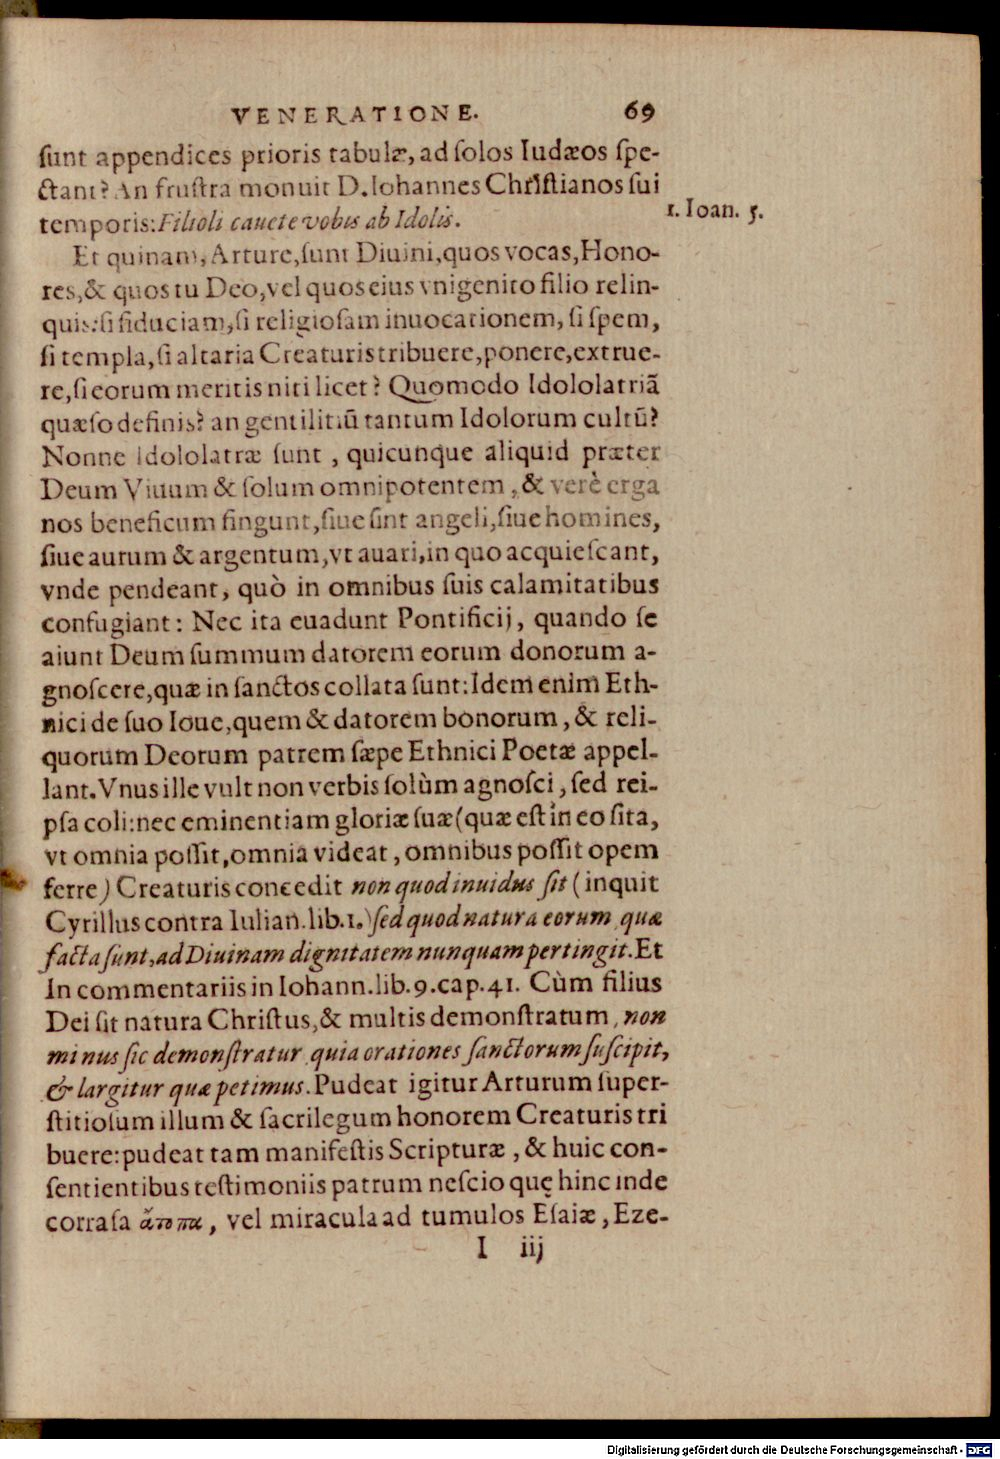 VENERATIONE. 69
sunt appendices prioris tabulæ, ad solos Iudæos spe-
ctant? An frustra monuit D. Iohannes Christianos sui
temporis: Filioli cauete vobis ab Idolis.
1. Ioan. 5.
Et quinam, Arture, sunt Diuini, quos vocas, Hono-
res, & quos tu Deo, vel quos eius vnigenito filio relin-
quis: si fiduciam, si religiosam inuocationem, si spem,
si templa, si altaria Creaturis tribuere, ponere, extrue-
re, si eorum meritis niti licet? Quomodo Idololatriã
quæso definis? an gentilitiũ tantum Idolorum cultũ?
Nonne Idololatræ sunt, quicunque aliquid præter
Deum Viuum & solum omnipotentem, & verè erga
nos beneficum fingunt, siue sint angeli, siue homines,
siue aurum & argentum, vt auari, in quo acquiescant,
vnde pendeant, quò in omnibus suis calamitatibus
confugiant: Nec ita euadunt Pontificij, quando se
aiunt Deum summum datorem eorum donorum a-
gnoscere, quæ in sanctos collata sunt: Idem enim Eth-
nici de suo Ioue, quem & datorem bonorum, & reli-
quorum Deorum patrem sæpe Ethnici Poetæ appel-
lant. Vnus ille vult non verbis solùm agnosci, sed rei-
psa coli: nec eminentiam gloriæ suæ (quæ est in eo sita,
vt omnia possit, omnia videat, omnibus possit opem
ferre) Creaturis concedit non quod inuidus sit (inquit
Cyrillus contra Iulian. lib. 1.) sed quod natura eorum quæ
facta sunt, ad Diuinam dignitatem nunquam pertingit. Et
In commentariis in Iohann. lib. 9. cap. 41. Cùm filius
Dei sit natura Christus, & multis demonstratum, non
minus sic demonstratur quia orationes sanctorum suscipit,
& largitur quæ petimus. Pudeat igitur Arturum super-
stitiosum illum & sacrilegum honorem Creaturis tri
buere: pudeat tam manifestis Scripturæ, & huic con-
sentientibus testimoniis patrum nescio quę hinc inde
corrasa ἄτοπα, vel miracula ad tumulos Esaiæ, Eze-
I iij
Digitalisierung gefördert durch die Deutsche Forschungsgemeinschaft - DFG